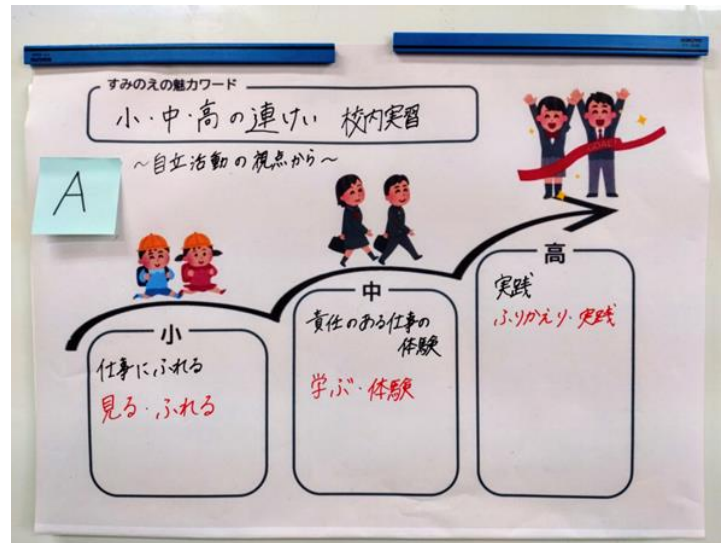 すみのえの魅力ワード
小・中・高の連けい 校内実習
～自立活動の視点から～
A
GOAL!
小
仕事にふれる
見る・ふれる
中
責任のある仕事の
体験
学ぶ・体験
高
実践
ふりかえり・実践